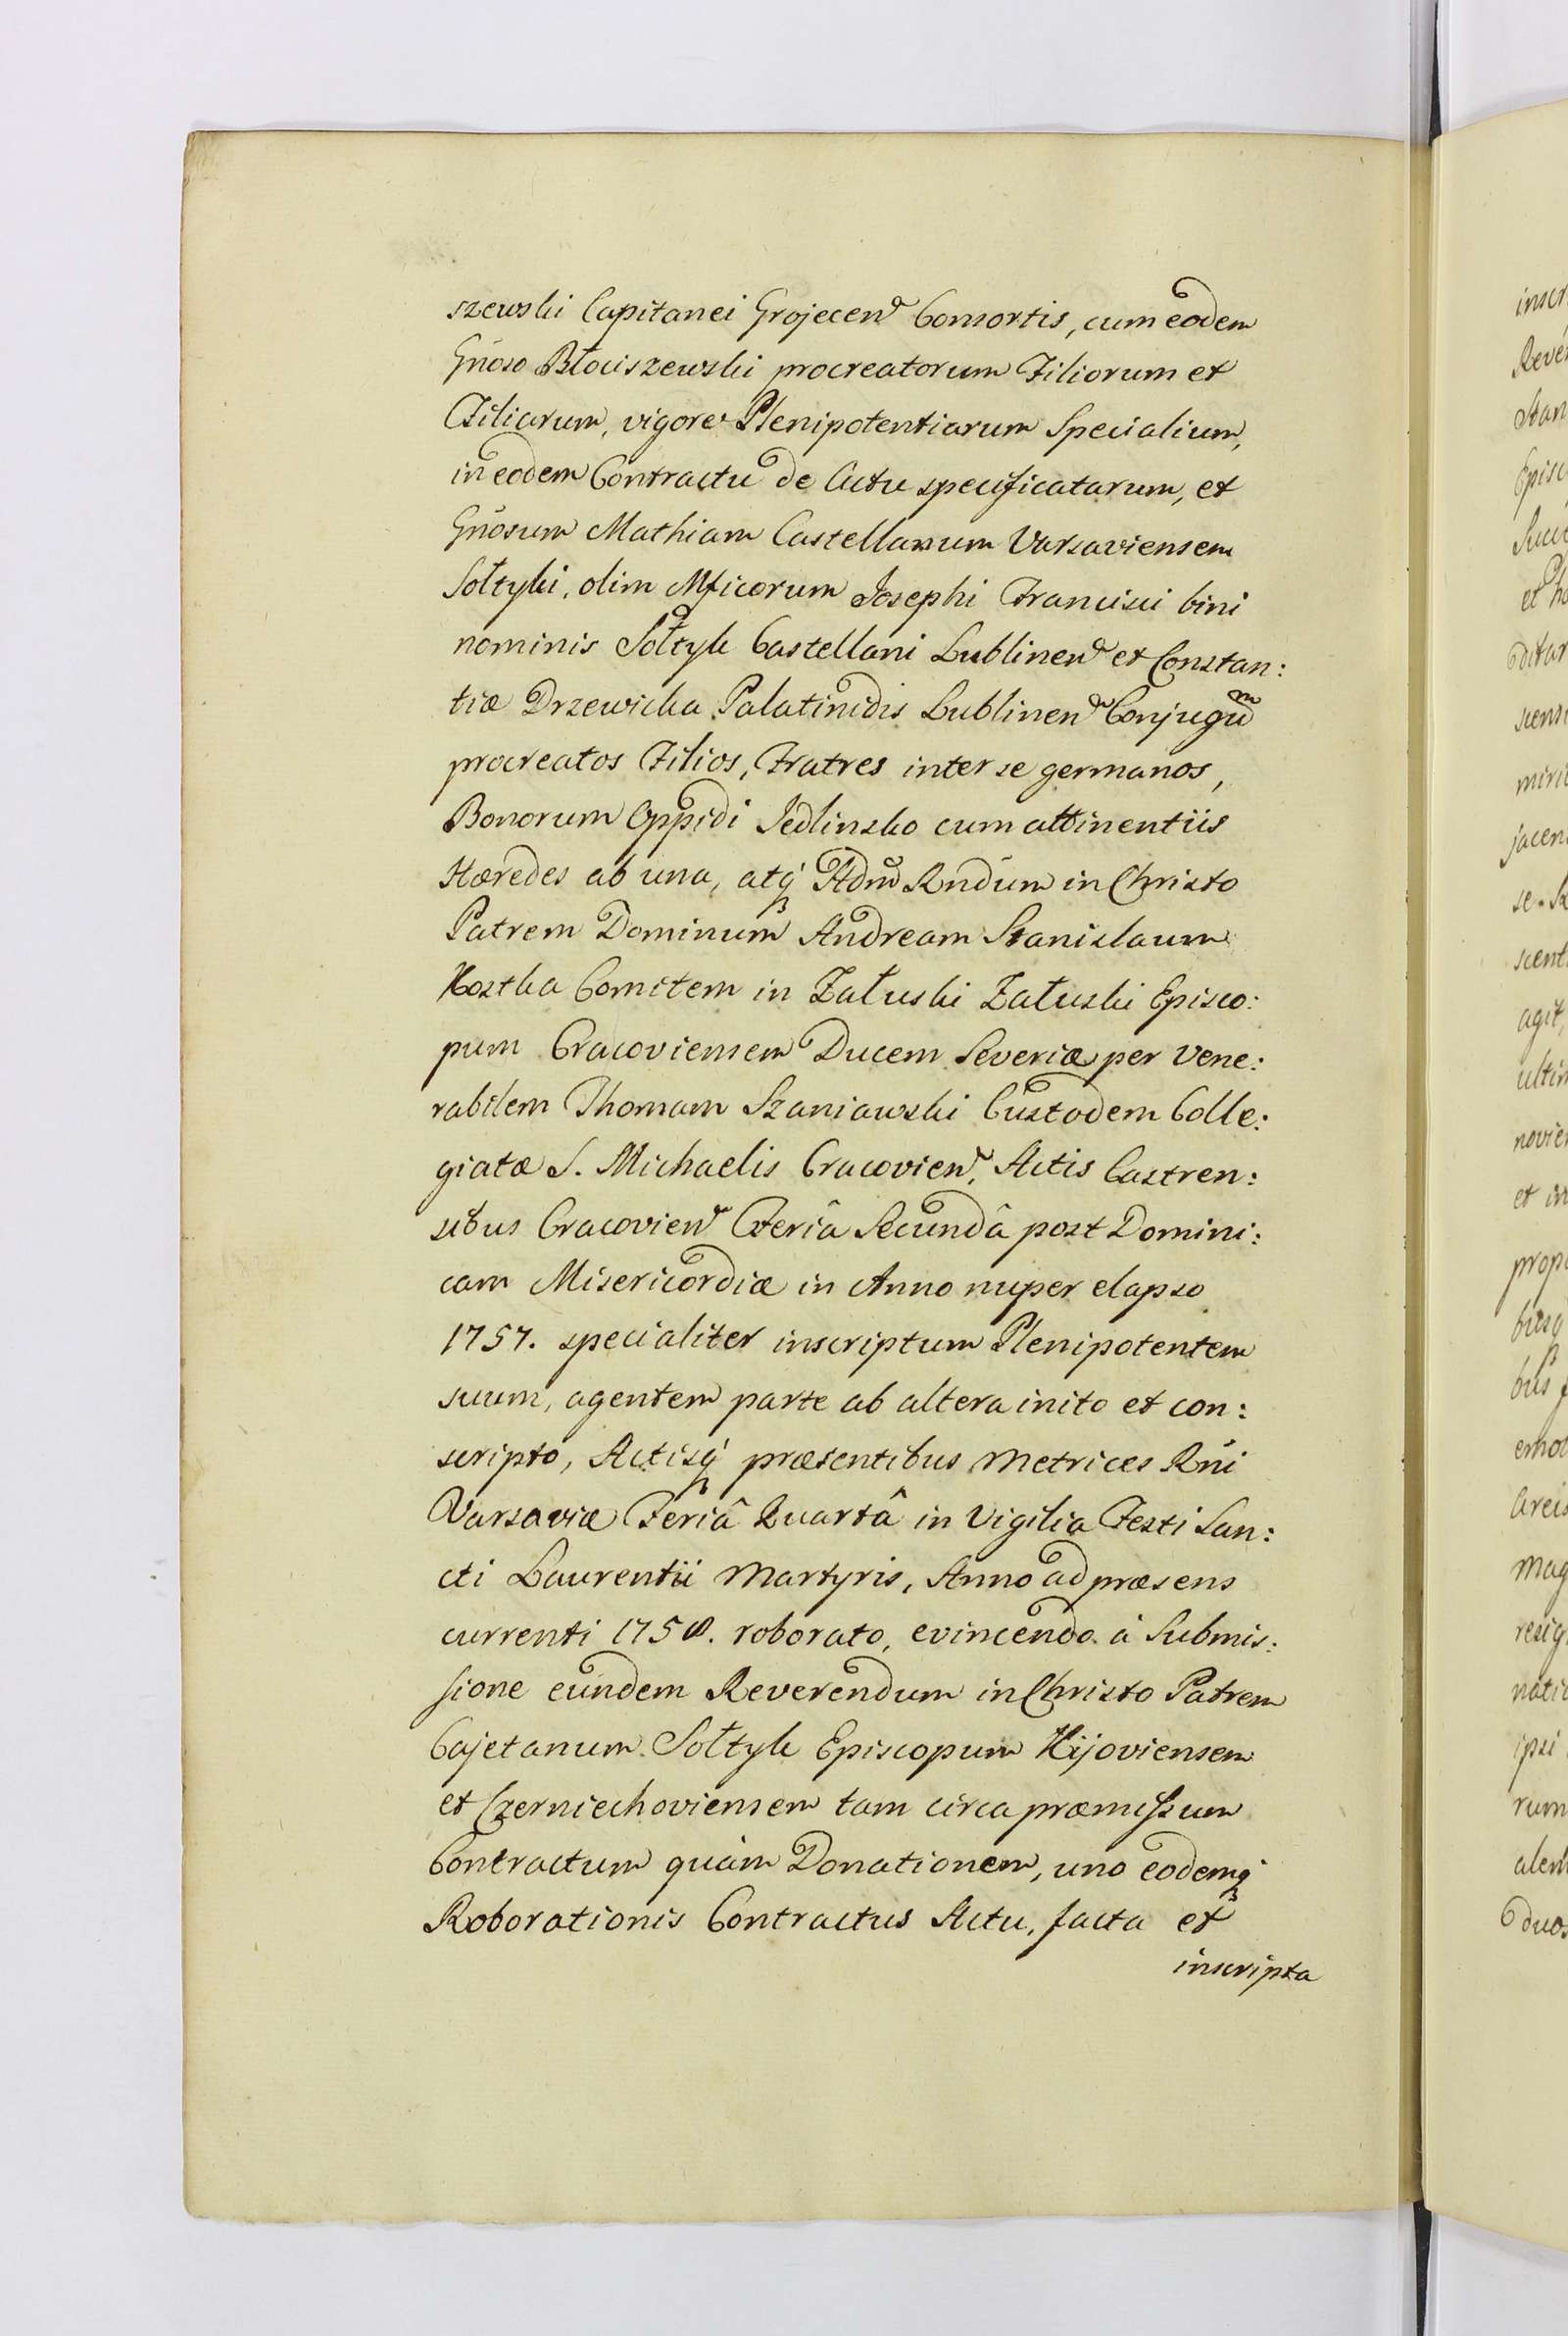 szewski Capitanei Grojecen Consortis, cum eodem
Gnoso Błociszewski procreatorum Filiorum et
Filiarum, vigore Plenipotentiarum Specialium,
in eodem Contractu de Actu specificatarum, et
Gnosum Mathiam Castellanum Varsaviensem
Sołtyki, olim Mficorum Josephi Francisci bini
nominis Sołtyk Castellani Lublinen et Constan:
tiæ Drzewicka Palatinidis Lublinen Conjugũ
procreatos Filios, Fratres inter se germanos,
Bonorum Oppidi Jedlinsko cum attinentiis
Hæredes ab una, atq Adm Rndum in Christo
Patrem Dominum Andream Stanislaum
Kostka Comitem in Załuski Załuski Episco:
pum Cracoviensem Ducem Severiæ per Vene:
rabilem Thomam Szaniawski Custodem Colle:
giatæ S. Michaelis Cracovien, Actis Castren:
sibus Cracovien Feriâ Secundâ post Domini:
cam Misericordiæ in Anno nuper elapso
1757. specialiter inscriptum Plenipotentem
suum, agentem parte ab altera inito et con:
scripto, Actisq præsentibus Metrices Rni
Varsaviæ Feriâ Quartâ in Vigilia Festi San:
cti Laurentii Martyris, Anno ad præsens
currenti 1758. roborato, evincendo à Submis:
sione eundem Reverendum in Christo Patrem
Cajetanum Sołtyk Episcopum Kijoviensem
et Czerniechoviensem tam circa præmissum
Contractum quàm Donationem, uno eodemq
Roborationis Contractus Actu, facta et
inscripta